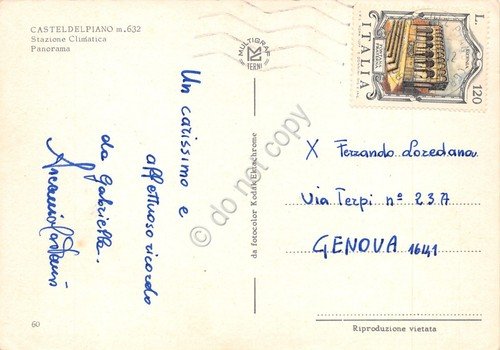 CASTELDELPIANO m. 632
Stazione Climatica
Panorama
MULTIGRAF
TERNI
L. 120
ITALIA
Un carissimo e
affettuoso ricordo
da Gabriella.
da fotocolor Kodak Ektachrome
X Ferrando Loredana
Via Terpi nº 23A
GENOVA 16141
60
Riproduzione vietata
do not copy